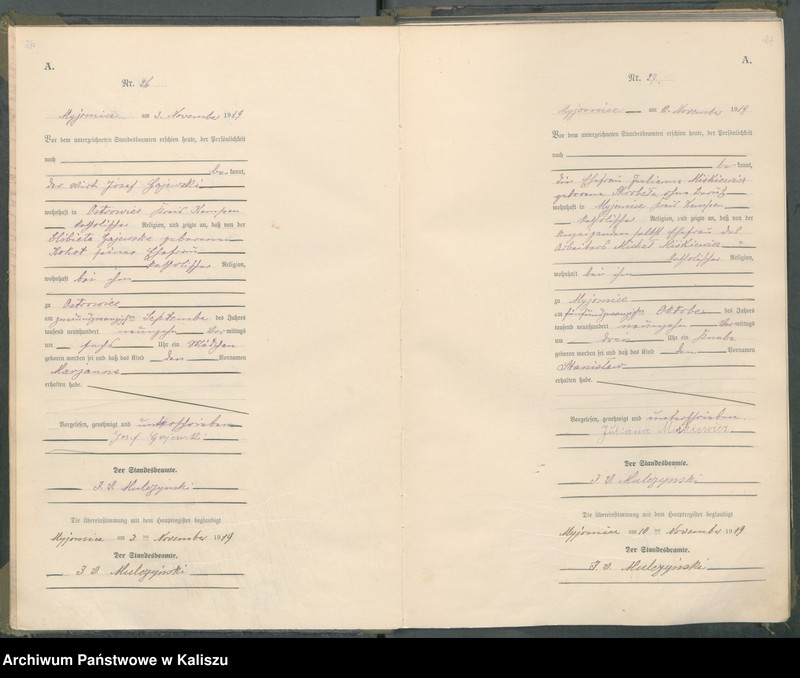 A.
Nr. 26
Myjomice am 3. November 1919
Vor dem unterzeichneten Standesbeamten erschien heute, der Persönlichkeit
nach
be kannt,
der Wirt Josef Gajewski
wohnhaft in Ostrowiec Kreis Kempen
katholischer Religion, und zeigte an, daß von der
Elżbieta Gajewska geborenen
seiner Ehefrau
katholischer Religion,
wohnhaft bei ihm
zu Ostrowiec
am September des Jahres
tausend neunhundert neunzehn Vormittags
um sechs Uhr ein Mädchen
geboren worden sei und daß das Kind den Vornamen
Marjanna
erhalten habe.
Vorgelesen, genehmigt und unterschrieben
Josef Gajewski
Der Standesbeamte.
I. V. Mulczyński
Die Übereinstimmung mit dem Hauptregister beglaubigt
Myjomice am 3. ten November 1919
Der Standesbeamte.
I. V. Mulczyński
A.
Nr. 27
Myjomice am November 1919
Vor dem unterzeichneten Standesbeamten erschien heute, der Persönlichkeit
nach
be kannt,
die Ehefrau Julianna Miśkiewicz
geborene ohne Beruf
wohnhaft in Myjomice Kreis Kempen
katholischer Religion, und zeigte an, daß von der
selbst Ehefrau des
Arbeiters Michał Miśkiewicz
katholischer Religion,
wohnhaft bei ihm
zu Myjomice
am fünfundzwanzigsten Oktober des Jahres
tausend neunhundert neunzehn Vormittags
um drei Uhr ein Knabe
geboren worden sei und daß das Kind den Vornamen
Stanisław
erhalten habe.
Vorgelesen, genehmigt und unterschrieben.
Juliana Miśkiewicz
Der Standesbeamte.
I. V. Mulczyński
Die Übereinstimmung mit dem Hauptregister beglaubigt
Myjomice am 10. ten November 1919
Der Standesbeamte.
I. V. Mulczyński
Archiwum Państwowe w Kaliszu